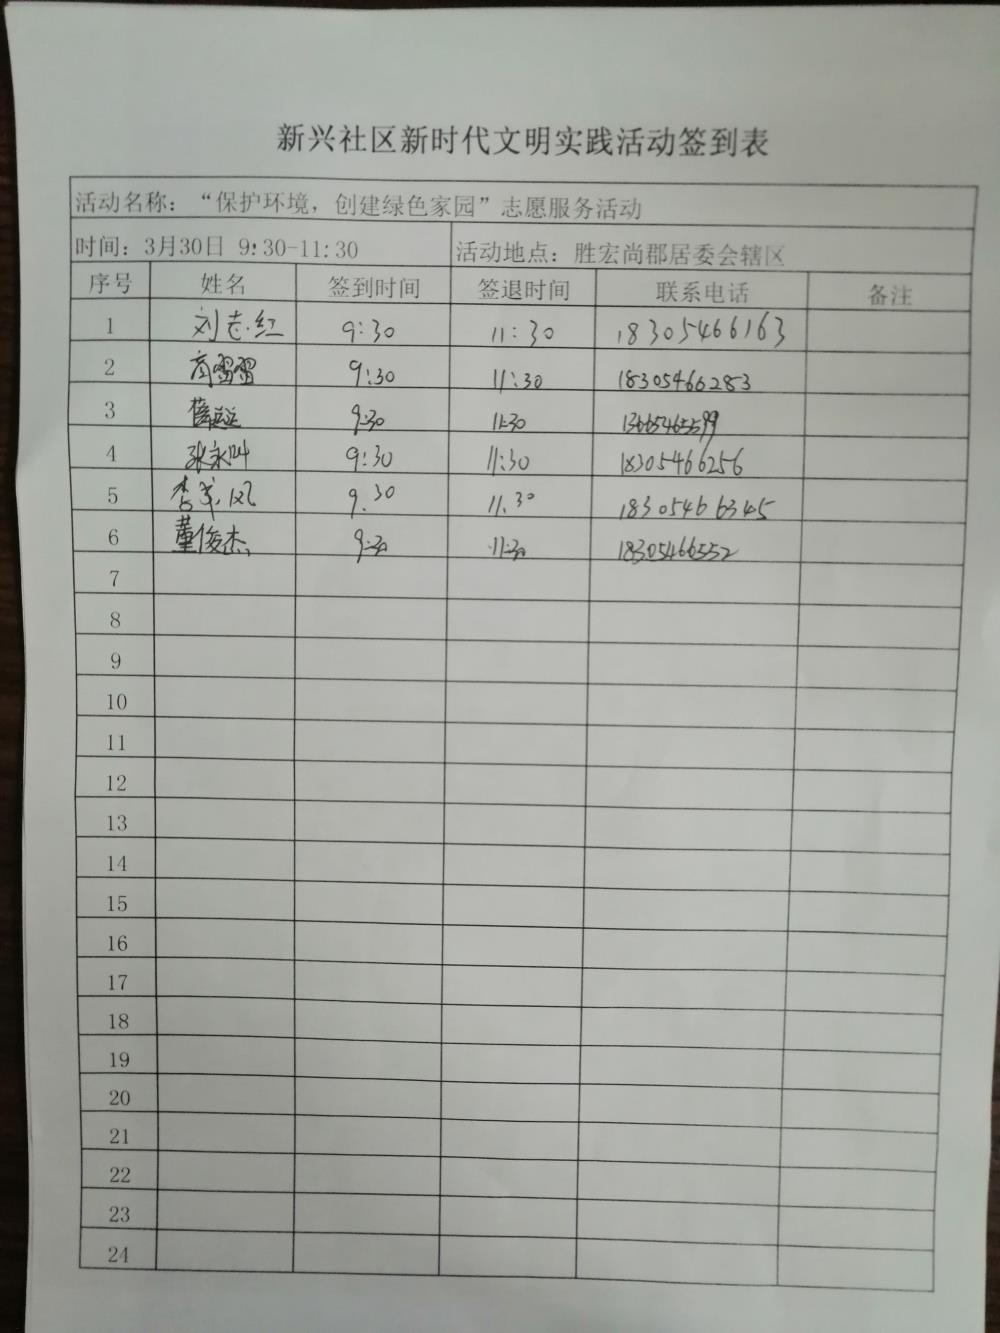 新兴社区新时代文明实践活动签到表
活动名称：“保护环境，创建绿色家园”志愿服务活动
时间：3月30日 9:30-11:30 活动地点：胜宏尚郡居委会辖区
序号 姓名 签到时间 签退时间 联系电话 备注
1 刘志红 9:30 11:30 18305466163
2 雷雷 9:30 11:30 18305466283
3 9:30 11:30 13665465599
4 张永叫 9:30 11:30 18305466256
5 李 风 9.30 11.30 18305466345
6 董俊杰 9:30 11:30 18305466552
7
8
9
10
11
12
13
14
15
16
17
18
19
20
21
22
23
24